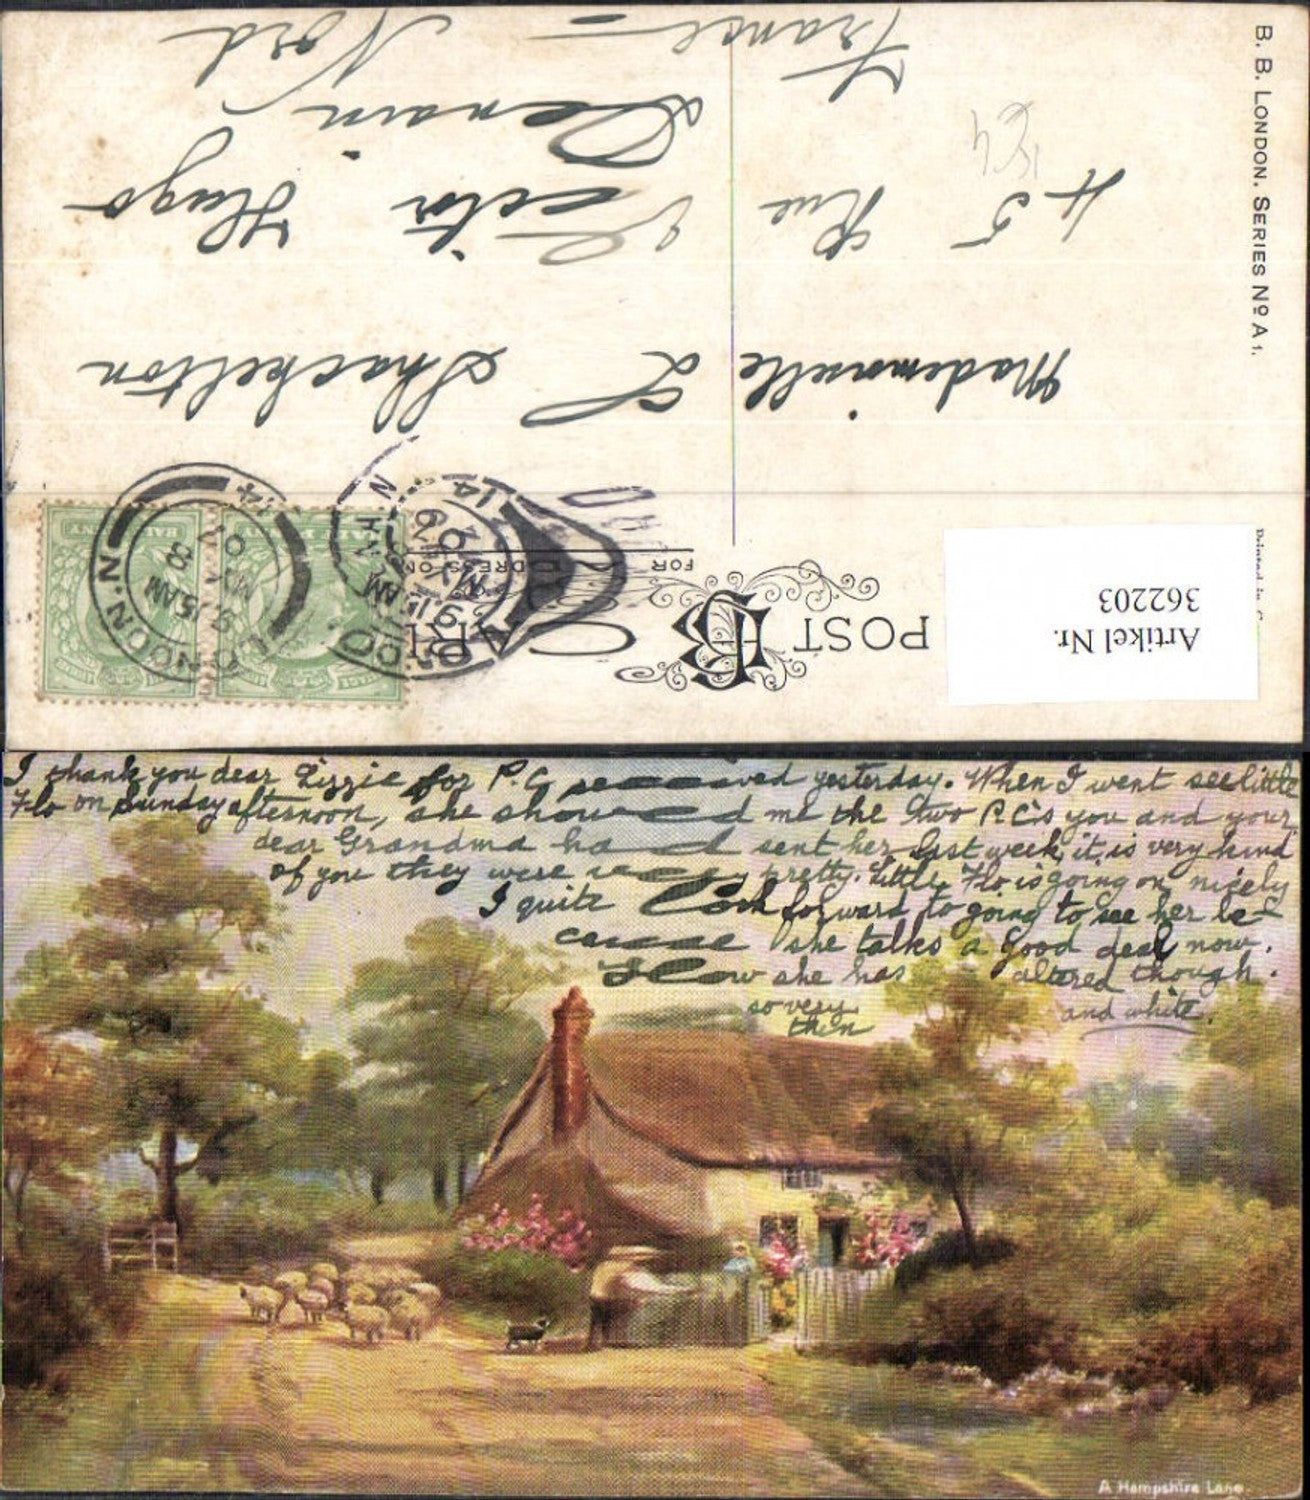 B. B. LONDON. SERIES Nº A 1.
Printed in
Artikel Nr.
362203
POST CARD
FOR ADDRESS ONLY
LONDON. N.
9.15 AM
MY 8
14
Mademoiselle L Shackelton
45 Rue Victor Hugo
Denain
France = Nord
I thank you dear Lizzie for P.C. received yesterday. When I went see little
Flo on Sunday afternoon, she showed me the two P.C's you and your
dear Grandma had sent her last week, it is very kind
of you they were very pretty. Little Flo is going on nicely
I quite look forward to going to see her be-
cause she talks a good deal now.
How she has altered though.
so very and white.
thin
A Hampshire Lane.